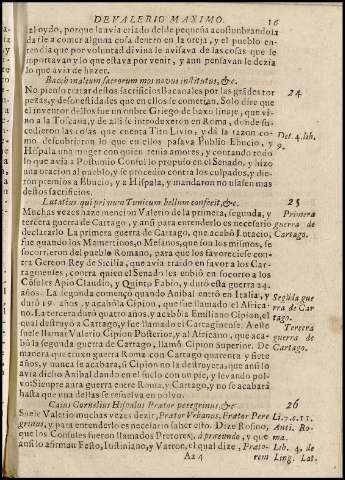 DE VALERIO MAXIMO. 16
al oydo, porque la avia criado desde pequeña acostumbrandola
da sele a comer alguna cosa dentro en la oreja, y el pueblo en-
tendia que por voluntad divina le avisava de las cosas que le
importavan y lo que estava por venir, y aun pensavan le dezia
lo que avia de hazer.
Bacchanalium sacrorum mos novus institutus, &c. 24
No pienso tratar destos sacrificios Bacanales por las grādes tor
pezas, y desonestidades que en ellos se cometian. Solo dire que
el inventor dellos fue un onbre Griego de baxo linage, que vi-
no a la Toscana, y de alli se introduxeron en Roma, donde su-
cedieron las cosas que cuenta Tito Livio, y dà la razon co-
mo descubrieron lo que en ellos pasava Publio Ebucio, y
Hispala una muger con quien tenia amores, y contando todo
lo que avia a Postumio Consul lo propuso en el Senado, y hizo
una oracion sobre ello, y se procedio contra los culpados, y die-
ron premios a Ebucio, y a Hispala, y mandaron no usasen mas
destos sacrificios.
Det. 4. lib.
9.
Lutatius qui primum Punicum bellum confecit, &c. 25
Muchas vezes haze mencion Valerio de la primera, segunda, y
tercera guerra de Cartago, y ansi para entenderlo es necesario
declararlo. La primera guerra de Cartago, que acabò Lutacio,
fue quando los Mamertinos, o Mesanos, que son los mismos, se
socorrieron del pueblo Romano, para que los favoreciese con-
tra Gereon Rey de Sicilia, que avia traido en favor a los Car-
taginenses, contra quien el Senado les enbiò en socorro a los
Cōsules Apio Claudio, y Quinto Fabio, y durò esta guerra 24.
años. La segunda començò quando Anibal entrò en Italia, y
durò 19. años, y acabòla Cipion, que fue llamado el Africa-
no. La tercera durò quatro años, y acabòla Emiliano Cipion, el
qual destruyò a Cartago, y fue llamado el Cartaginense. A este
suele llamar Valerio Cipion Posterior, y al Africano, que aca-
bò la segunda guerra de Cartago, llamò Cipion superior. De
manera que truxo guerra Roma con Cartago quarenta y siete
años, y nunca se acabara, si Cipion no la destruyera, que ansi lo
avia dicho Anibal dando en el suelo con un pie, y levando pol-
vo: Siempre aura guerra entre Roma, y Cartago, y no se acabarà
hasta que una dellas se resuelva en polvo.
Primera
guerra de
Cartago.
Segūda gue
rra de Car
tago.
Tercera
guerra de
Cartago.
Caius Cornelius Hispalus Prætor peregrinus, &c. 26
Suele Valerio muchas vezes dezir, Prætor Urbanus, Prætor Pere
grinus, y para entenderlo es necesario saber esto. Dize Rosino,
que los Consules fueron llamados Pretores, à præeundo, y que
ansi lo afirman Festo, Iustiniano, y Varron, el qual dize, Præto-
Li. 7. c. 11.
Anti. Ro-
ma.
Lib. 4. de
Ling. Lat.
Aa 4 rem